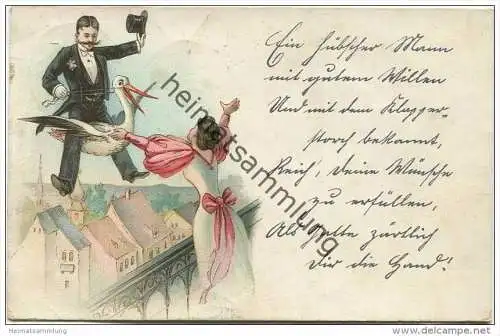 Ein hübscher Mann
mit gutem Willen
Und mit dem Klapper-
storch bekannt,
Reich, deine Wünsche
zu erfüllen,
Als Gatte zärtlich
Dir die Hand!
heimatsammlung
Heimatsammlung
www.delcampe.net